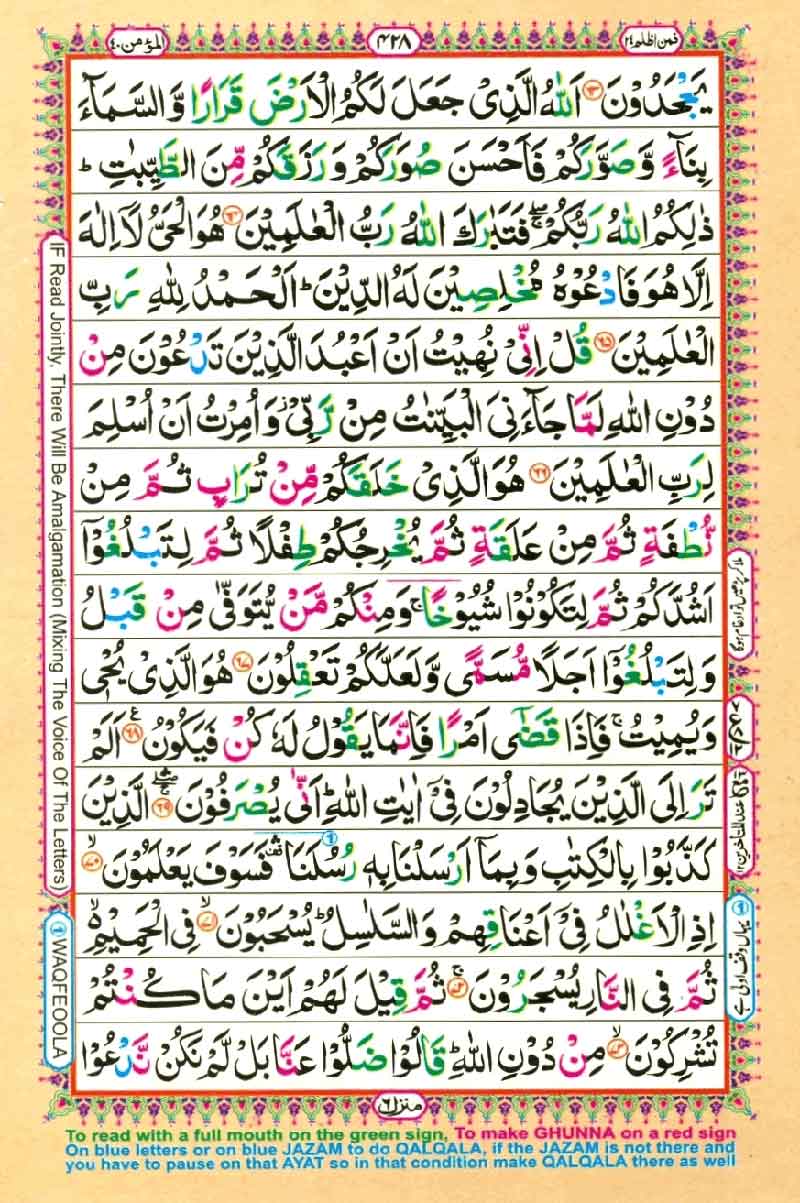 فمن اظلم ۲۴
۴۲۸
المؤمن ۴۰
يَجْحَدُوْنَ ۝۶۳ اَللّٰهُ الَّذِىْ جَعَلَ لَكُمُ الْاَرْضَ قَرَارًا وَّ السَّمَآءَ
بِنَآءً وَّ صَوَّرَكُمْ فَاَحْسَنَ صُوَرَكُمْ وَ رَزَقَكُمْ مِّنَ الطَّيِّبٰتِ ؕ
ذٰلِكُمُ اللّٰهُ رَبُّكُمْ ۖۚ فَتَبٰرَكَ اللّٰهُ رَبُّ الْعٰلَمِيْنَ ۝۶۴ هُوَ الْحَىُّ لَاۤ اِلٰهَ
اِلَّا هُوَ فَادْعُوْهُ مُخْلِصِيْنَ لَهُ الدِّيْنَ ؕ اَلْحَمْدُ لِلّٰهِ رَبِّ
الْعٰلَمِيْنَ ۝۶۵ قُلْ اِنِّىْ نُهِيْتُ اَنْ اَعْبُدَ الَّذِيْنَ تَدْعُوْنَ مِنْ
دُوْنِ اللّٰهِ لَمَّا جَآءَنِىَ الْبَيِّنٰتُ مِنْ رَّبِّىْ ؗ وَ اُمِرْتُ اَنْ اُسْلِمَ
لِرَبِّ الْعٰلَمِيْنَ ۝۶۶ هُوَ الَّذِىْ خَلَقَكُمْ مِّنْ تُرَابٍ ثُمَّ مِنْ
نُّطْفَةٍ ثُمَّ مِنْ عَلَقَةٍ ثُمَّ يُخْرِجُكُمْ طِفْلًا ثُمَّ لِتَبْلُغُوْۤا
اَشُدَّكُمْ ثُمَّ لِتَكُوْنُوْا شُيُوْخًا ۚ وَمِنْكُمْ مَّنْ يُّتَوَفّٰى مِنْ قَبْلُ
وَ لِتَبْلُغُوْۤا اَجَلًا مُّسَمًّى وَّ لَعَلَّكُمْ تَعْقِلُوْنَ ۝۶۷ هُوَ الَّذِىْ يُحْىٖ
وَ يُمِيْتُ ۚ فَاِذَا قَضٰۤى اَمْرًا فَاِنَّمَا يَقُوْلُ لَهٗ كُنْ فَيَكُوْنُ ۝۶۸ اَلَمْ
تَرَ اِلَى الَّذِيْنَ يُجَادِلُوْنَ فِىْۤ اٰيٰتِ اللّٰهِ ؕ اَنّٰى يُصْرَفُوْنَ ۝۶۹ الَّذِيْنَ
كَذَّبُوْا بِالْكِتٰبِ وَ بِمَاۤ اَرْسَلْنَا بِهٖ رُسُلَنَا ۛ فَسَوْفَ يَعْلَمُوْنَ ۝۷۰
اِذِ الْاَغْلٰلُ فِىْۤ اَعْنَاقِهِمْ وَ السَّلٰسِلُ ؕ يُسْحَبُوْنَ ۝۷۱ فِى الْحَمِيْمِ
ثُمَّ فِى النَّارِ يُسْجَرُوْنَ ۝۷۲ ثُمَّ قِيْلَ لَهُمْ اَيْنَ مَا كُنْتُمْ
تُشْرِكُوْنَ ۝۷۳ مِنْ دُوْنِ اللّٰهِ ؕ قَالُوْا ضَلُّوْا عَنَّا بَلْ لَّمْ نَكُنْ نَّدْعُوْا
منزل ۶
IF Read Jointly, There Will Be Amalgamation (Mixing The Voice Of The Letters)
① WAQFE OOLA
یہاں وقف اولیٰ ہے
To read with a full mouth on the green sign, To make GHUNNA on a red sign
On blue letters or on blue JAZAM to do QALQALA, if the JAZAM is not there and
you have to pause on that AYAT so in that condition make QALQALA there as well